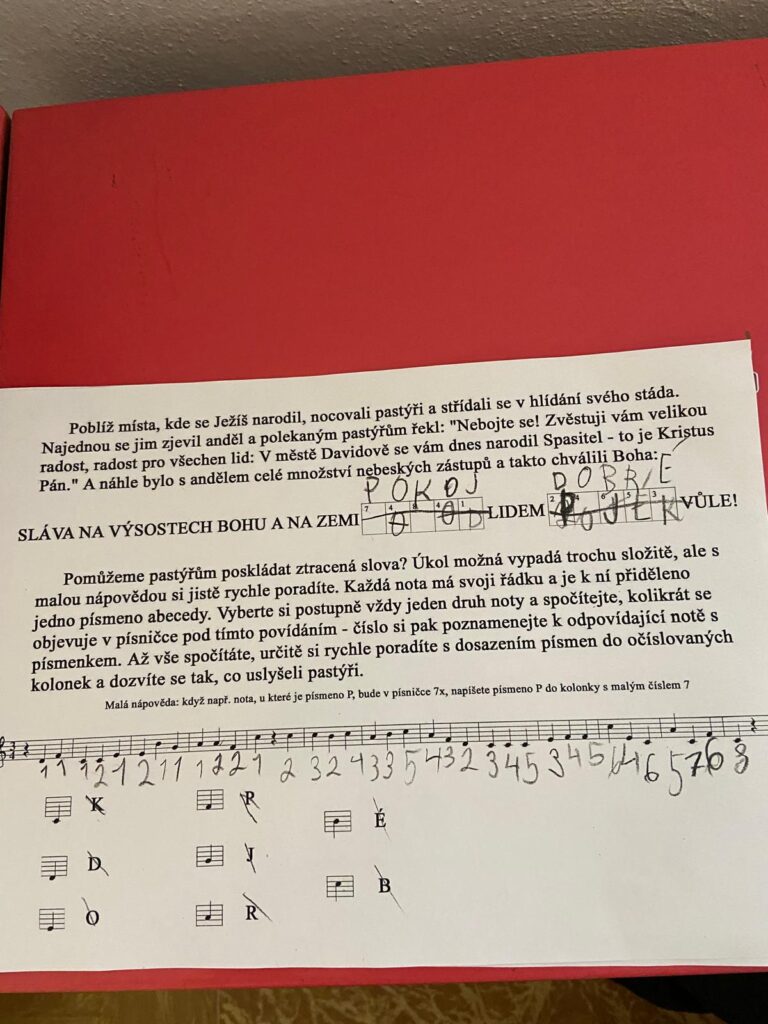 Poblíž místa, kde se Ježíš narodil, nocovali pastýři a střídali se v hlídání svého stáda.
Najednou se jim zjevil anděl a polekaným pastýřům řekl: "Nebojte se! Zvěstuji vám velikou
radost, radost pro všechen lid: V městě Davidově se vám dnes narodil Spasitel - to je Kristus
Pán." A náhle bylo s andělem celé množství nebeských zástupů a takto chválili Boha:
POKOJ DOBRÉ
SLÁVA NA VÝSOSTECH BOHU A NA ZEMI 7 4 8 4 1 LIDEM 2 4 6 5 3 VŮLE!
Pomůžeme pastýřům poskládat ztracená slova? Úkol možná vypadá trochu složitě, ale s
malou nápovědou si jistě rychle poradíte. Každá nota má svoji řádku a je k ní přiděleno
jedno písmeno abecedy. Vyberte si postupně vždy jeden druh noty a spočítejte, kolikrát se
objevuje v písničce pod tímto povídáním - číslo si pak poznamenejte k odpovídající notě s
písmenkem. Až vše spočítáte, určitě si rychle poradíte s dosazením písmen do očíslovaných
kolonek a dozvíte se tak, co uslyšeli pastýři.
Malá nápověda: když např. nota, u které je písmeno P, bude v písničce 7x, napíšete písmeno P do kolonky s malým číslem 7
1 1 1 2 1 2 1 1 1 2 2 1 2 3 2 4 3 3 5 4 3 2 3 4 5 3 4 5 6 4 6 5 7 6 8
K P É
D J B
O R